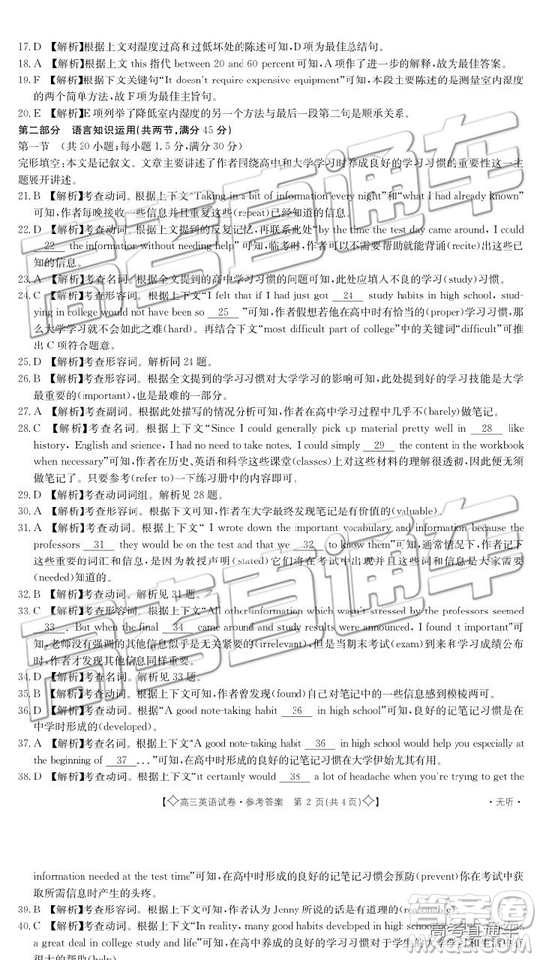 17. D 【解析】根据上文对湿度过高和过低坏处的陈述可知,D项为最佳总结句。
18. A 【解析】根据上文 this 指代 between 20 and 60 percent 可知,A项作了进一步的解释。故为最佳答案。
19. F 【解析】根据下文关键句“It doesn't require expensive equipment”可知,F项正确。此段主要陈述的是测量室内湿度
的两个简单方法,故 F 项为最佳选项。
20. E 【解析】E项列举了降低室内湿度的另一个方法与最后一段第二句是顺承关系。
第二部分 语言知识运用(共两节,满分 45 分)
第一节 (共 20 小题;每小题 1.5 分,满分 30 分)
完形填空:本文是记叙文。文章主要讲述了作者围绕高中和大学学习时养成良好的学习习惯的重要性这一主
题展开讲述。
21. B 【解析】考查动词。根据上下文“Taking in a bit of information every night”和“what I had already known”
可知,作者每晚接收一些信息并且重复这些(repeat)已经知道的信息。
22. D 【解析】考查动词。根据上文提到的反复记忆,再联系下文“by the time the test day came around, I could
22 the information without needing help”可知,临考时,作者可以不需要帮助就能背诵(recite)出这些已
知的信息。
23. A 【解析】考查名词。根据全文提到的高中学习习惯的问题可知,此处应填人不良的学习(study)习惯。
24. C 【解析】考查形容词。根据上下文“I felt that if I had just got 24 study habits in high school, stud-
ying in college would not have been so 25 ”可知,作者假想若他在高中时有恰当的(proper)学习习惯,那
么大学学习就不会如此之难(hard)。再结合下文“most difficult part of college”中的关键词“difficult”可推
出 C 项符合题意。
25. D 【解析】考查形容词。解析同 24 题。
26. B 【解析】考查形容词。根据全文提到的学习习惯对大学学习的影响可知,此处最好的学习技能是大学里
最重要的(important),也是最难的一部分。
27. A 【解析】考查副词。根据此处描写的情况分析可知,作者在高中学习过程中几乎不(barely)做笔记。
28. C 【解析】考查名词。根据上下文“Since I could generally pick up material pretty well in 28 like
history, English and science, I had no need to take notes. I could simply 29 the content in the workbook
when necessary”可知,作者在历史、英语和科学这些课堂(classes)上对材料的理解很透彻。因此,便无须做
笔记了。只要参考(refer to)一下练习册中的内容即可。
29. D 【解析】考查动词词组。解析见 28 题。
30. A 【解析】考查形容词。根据下文可知,作者在大学最终发现笔记是有价值的(valuable)。
31. A 【解析】考查动词。根据上下文“ I wrote down the important vocabulary and information because the
professors 31 they would be on the test and that we 32 to know them”可知,通常情况下,作者记下
这些重要的词汇和信息,因为教授声明(stated)它们将在考试中出现并且这些词和信息是大家需要
(needed)知道的。
32. B 【解析】考查动词。解析见 31 题。
33. C 【解析】考查形容词。根据上下文“All other information which wasn't stressed by the professors seemed
33 . But when the final 34 came around and study results were announced, I found it important”可
知,老师没有强调的其他信息似乎是无关紧要的(irrelevant),但是当期末考试(exam)到来和学习成绩公布
时,作者才发现其他信息同样重要。
34. D 【解析】考查名词。解析见 33 题。
35. D 【解析】考查动词。根据此处可知,作者曾发现(found)自己对笔记中的一些信息感到模棱模糊。
36. D 【解析】考查动词。根据“A good note-taking habit 36 in high school”可知,良好的记笔记习惯是在
中学时形成的(developed)。
37. A 【解析】考查名词。根据上下文“A good note-taking habit 36 in high school would help you especially at
the beginning of 37 ...”可知,在高中形成良好的记笔记习惯在大学伊始尤其有用。
38. D 【解析】考查动词。根据上下文“it certainly would 38 a lot of headache when you're trying to get the
【◇高三英语试卷·参考答案 第 2 页(共 4 页)◇】 ·无听·
information needed at the test time”可知,在高中时形成的良好的记笔记习惯会预防(prevent)你在考试中获
取所需信息时产生的头疼。
39. B 【解析】考查形容词。根据下文可知,作者认为 Jenny 所说的话是有道理的(reasonable)。
40. C 【解析】考查动词。根据上文“In reality, many good habits developed in high school
a great deal in college study and life”可知,在高中养成的良好的习惯对于学生的大学学习和生活有很大
的帮助(help)。
高考直通车
答案圈